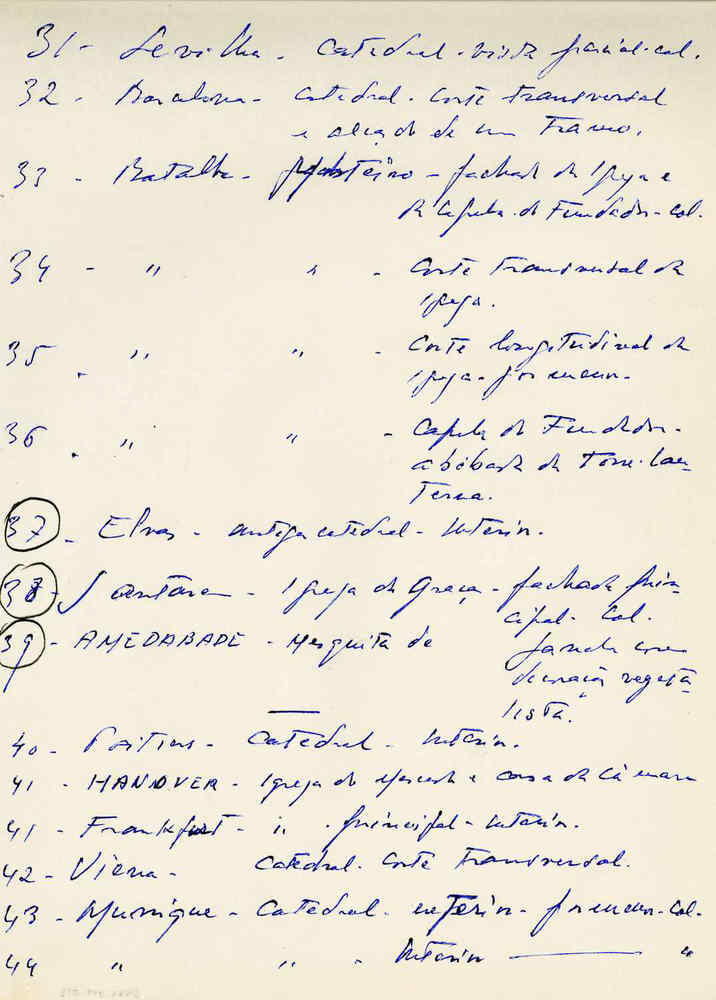 31 - Sevilha - Catedral - vista parcial - col.
32 - Barcelona - Catedral - Corte transversal
e alçado de um Tramo.
33 - Batalha - Mosteiro - fachada da Igreja e
da Capela do Fundador - Col.
34 - " " - Corte transversal da
Igreja.
35 - " " - Corte longitudinal da
Igreja -
36 - " " - Capela do Fundador -
abóbada da Torre-lan-
terna.
37 - Elvas - antiga catedral - Interior.
38 - Santarém - Igreja da Graça - fachada prin-
cipal - Col.
39 - AMEDABADE - Mesquita de
Janela com
decoração vegeta-
lista.
40 - Poitiers - Catedral - Interior.
41 - HANOVER - Igreja do Mercado e casa da Câmara
41 - Frankfurt - " - principal - Interior.
42 - Viena - Catedral - Corte Transversal.
43 - Munique - Catedral - interior - - Col.
44 " " - Interior — "